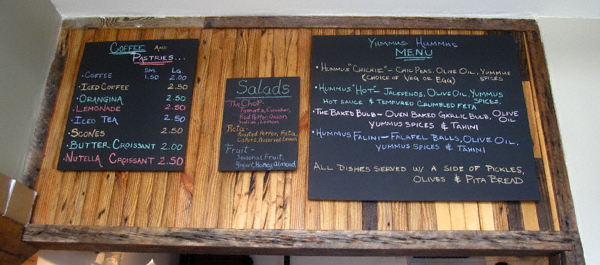 COFFEE AND
PASTRIES...
SM. LG.
• COFFEE 1.50 2.00
• ICED COFFEE 2.50
• ORANGINA 2.50
• LEMONADE 2.50
• ICED TEA 2.50
• SCONES 2.50
• BUTTER CROISSANT 2.00
• NUTELLA CROISSANT 2.50
Salads
The Chop-
Tomato, Cucumber,
Red Pepper, Onion
Feta -
Roasted Pepper, Feta,
Fruit -
Seasonal Fruit,
Yogurt, Honey, Almond
YUMMUS HUMMUS
MENU
• HUMMUS "CHICKIE" - CHIC PEAS, OLIVE OIL, YUMMUS
SPICES
(CHOICE OF VEG OR EGG)
• HUMMUS "HOT" - JALEPENOS, OLIVE OIL, YUMMUS
SPICES,
HOT SAUCE & TEMPURED CRUMBLED FETA
• THE BAKED BULB - OVEN BAKED GARLIC BULB, OLIVE
OIL
YUMMUS SPICES & TAHINI
• HUMMUS FALINI - FALAFEL BALLS, OLIVE OIL,
YUMMUS SPICES & TAHINI
ALL DISHES SERVED W/ A SIDE OF PICKLES,
OLIVES & PITA BREAD